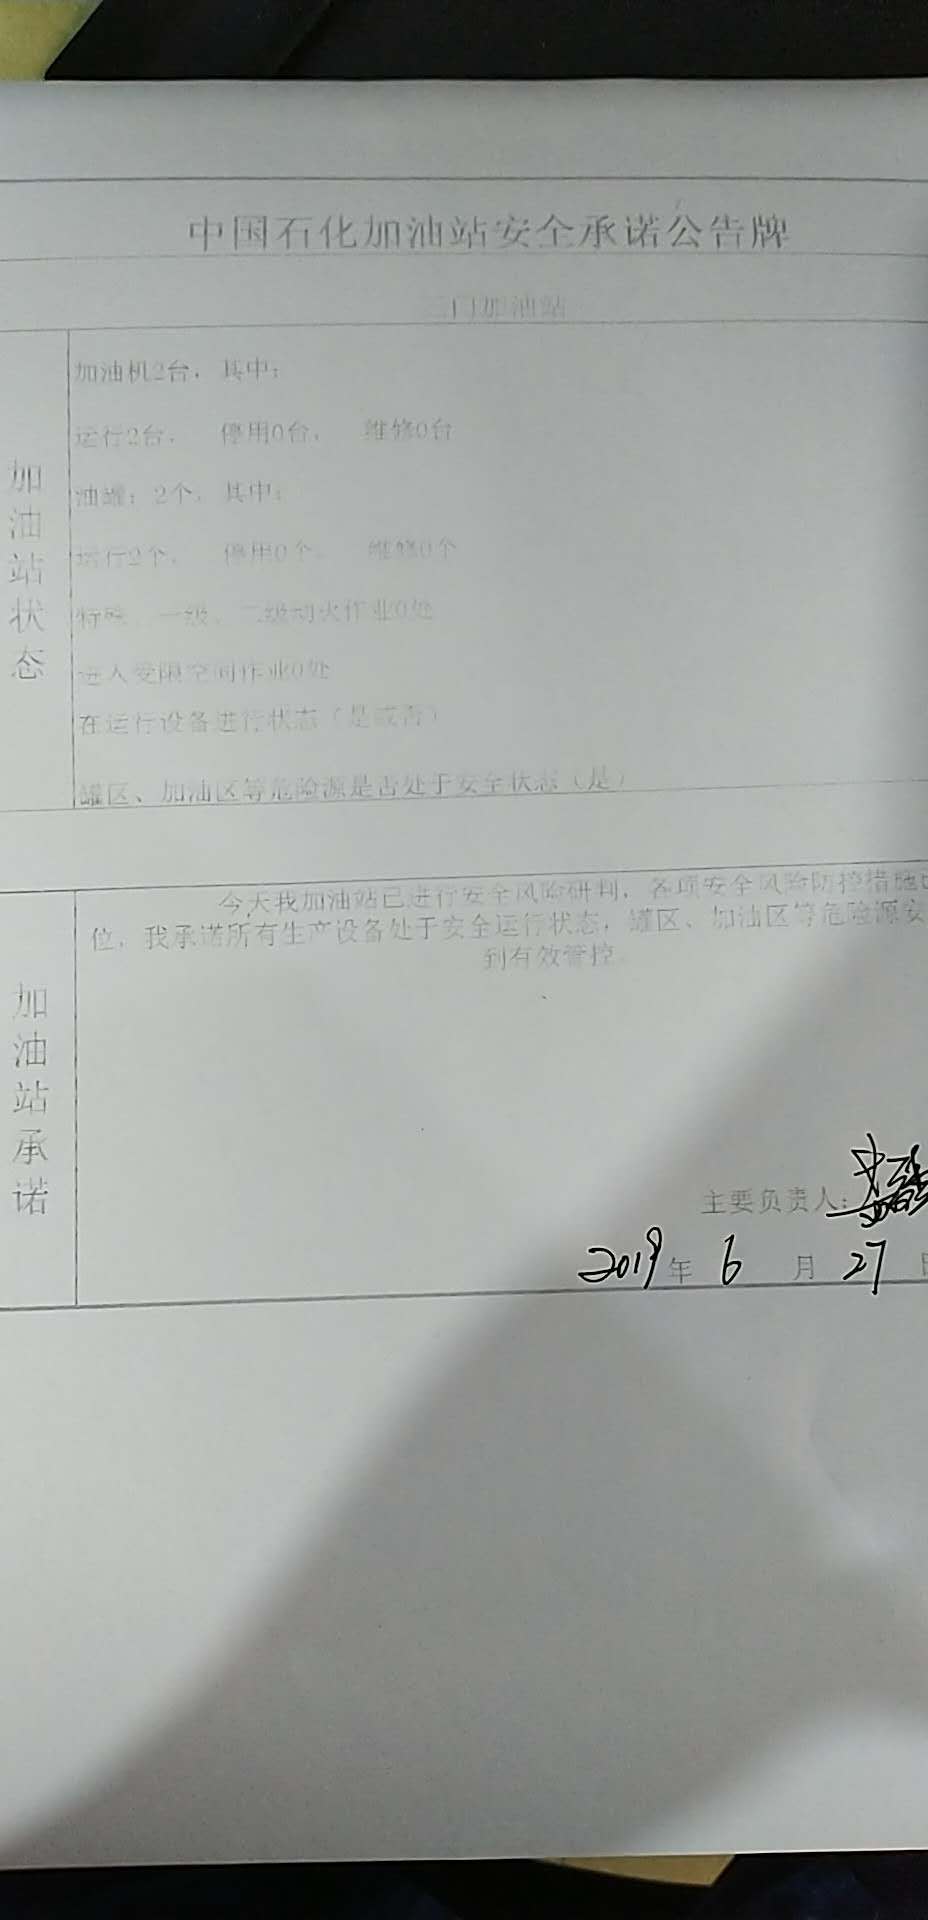 中国石化加油站安全承诺公告牌
门加油站
加油站状态
加油机2台，其中：
运行2台， 停用0台， 维修0台
油罐：2个，其中：
运行2个， 停用0个， 维修0个
特殊、一级、二级动火作业0处
进入受限空间作业0处
在运行设备进行状态（是或否）
罐区、加油区等危险源是否处于安全状态（是）
加油站承诺
今天我加油站已进行安全风险研判，各项安全风险防控措施
位，我承诺所有生产设备处于安全运行状态，罐区、加油区等危险源安
到有效管控
主要负责人：
2019年 6 月 27 日